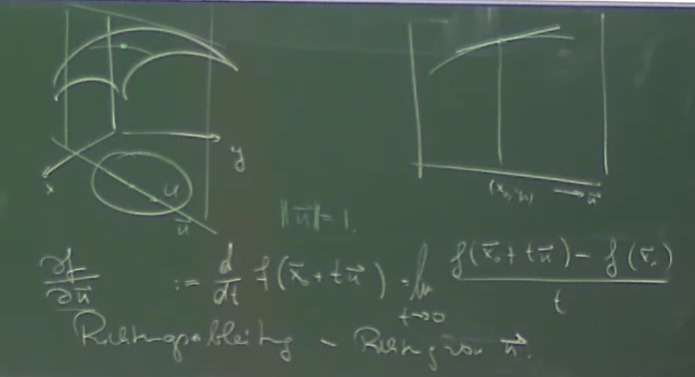 x
y
U
\vec{u}
(x_0, y_0) → \vec{u}
||\vec{u}|| = 1.
\frac{∂f}{∂\vec{u}} := \frac{d}{dt} f(\vec{x}_0 + t\vec{u}) = \lim_{t→0} \frac{f(\vec{x}_0 + t\vec{u}) - f(\vec{x}_0)}{t}
Richtungsableitung - Richtung von \vec{u}.